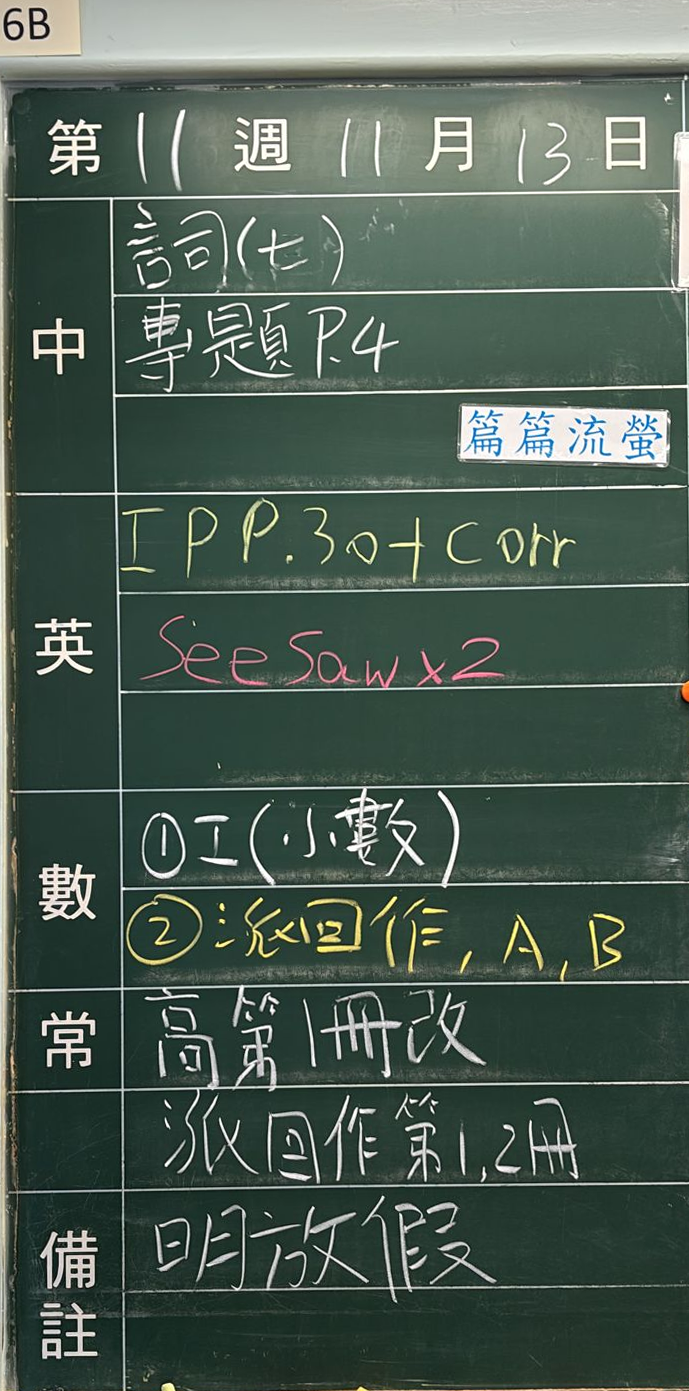 6B
第 11 週 11 月 13 日
中
詞(七)
專題 P.4
篇篇流螢
英
I P P.30+Corr
SeeSaw x2
數
①工(小數)
②派回作, A, B
常
高第1冊改
派回作第1,2冊
備註
明放假